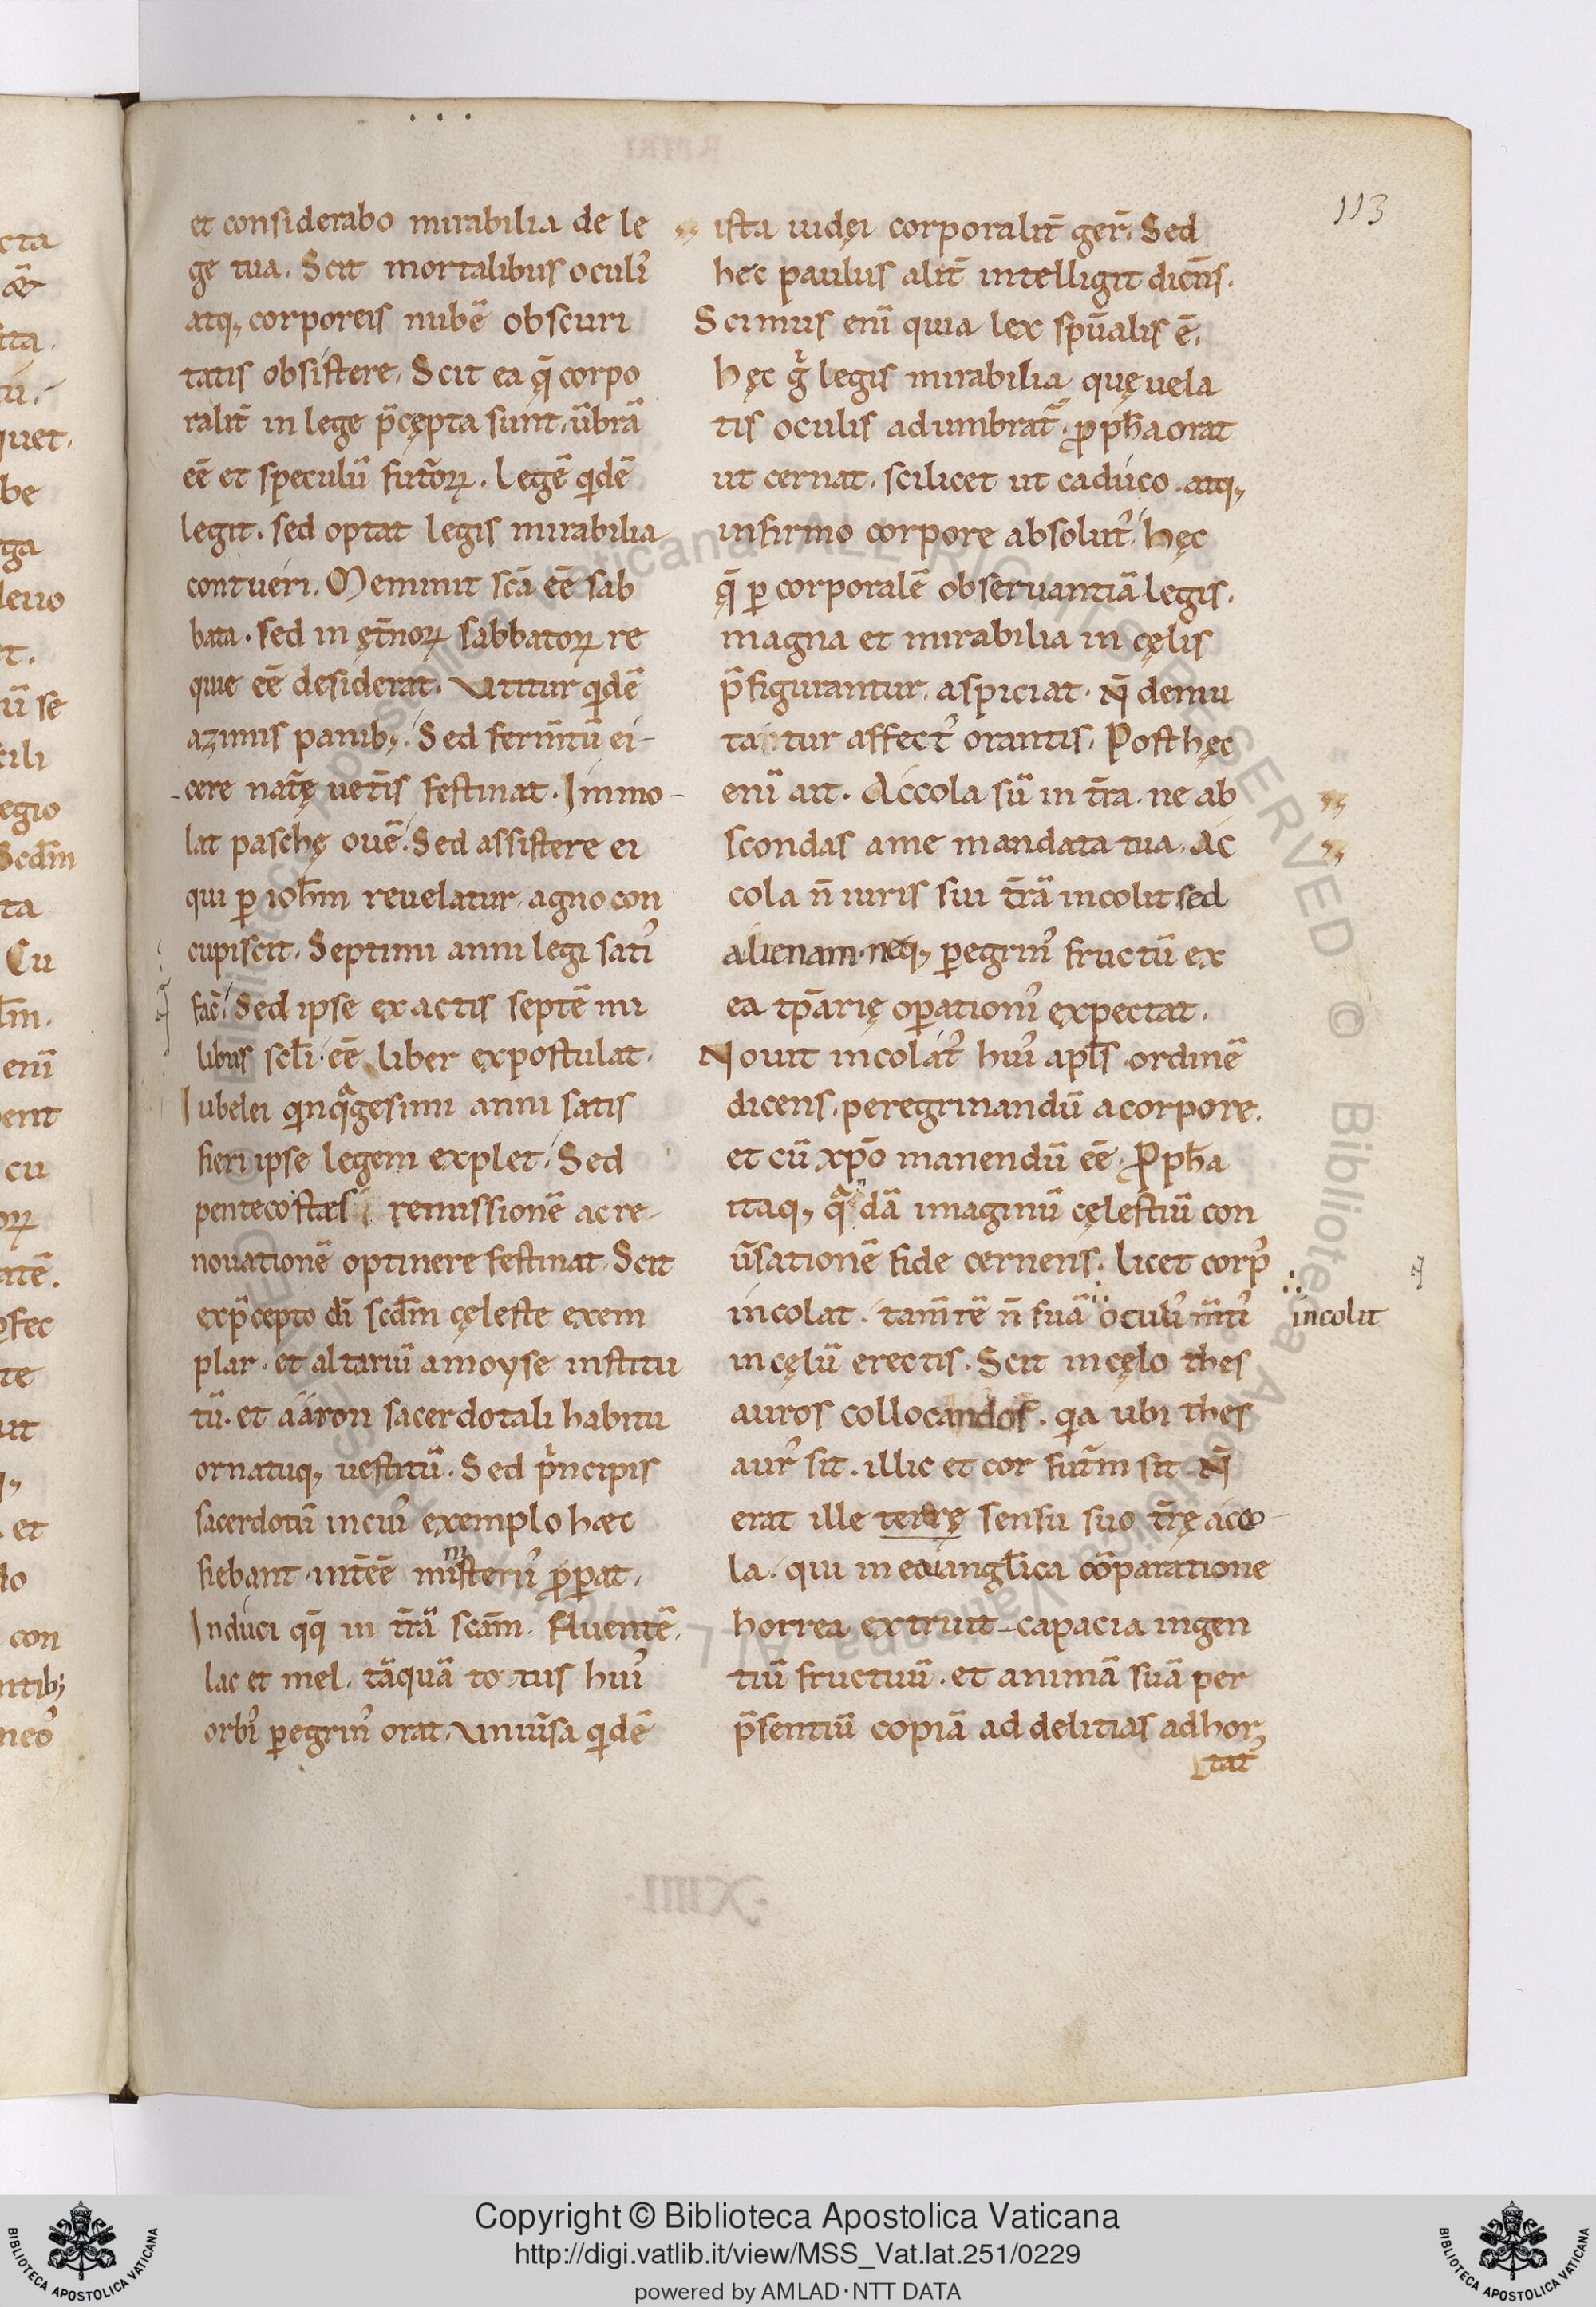 113
et considerabo mirabilia de le
ge tua. Scit mortalibus oculi᾽
atq; corporeis nubē obscuri
tatis obsistere. Scit ea q̄ corpo
ralit̄ in lege p̄cępta sunt. ūbrā
eē et speculū futōrꝝ. Legē qidē
legit. sed optat legis mirabilia
contueri. Meminit scā eē sab
bata. sed in ęt̄norꝝ sabbatorꝝ re
quie eē desiderat. Vtitur qidē
azimis panib;. Sed ferm̄tū ei-
cere nat̄ę uet̄is festinat. Immo-
lat paschę ouē. Sed assistere ei
qui ꝑ ioh̄m reuelatur. agno con
cupiscit. Septimi anni legi sati᾽
fac̄. Sed ipse exactis septē mi
libus scl̄i. eē liber expostulat.
Iubelei qinqᵃgesimi anni satis
fieri ipse legem explet. Sed
pentecostæs remissionē ac re-
nouationē optinere festinat. Scit
exp̄cepto dī scd̄m cęleste exem
plar. et altariū amoyse institu
tū. et aaron sacerdotali habitu
ornatuq; uestitū. Sed pⁱncipis
sacerdotū in cui᾽ exemplo hæc
fiebant. int̄eē ministerii᾽ ꝓꝑat.
Induci qq̄ in t̄rā scām. fluentē.
lac et mel. tāquā totus hui᾽
orbi᾽ ꝑegrin᾽ orat. Uniūsa qidē
ista iudęi corporalit̄ ger̄. Sed
hęc paulus alit̄ intelligit dicn̄s.
Scimus eni quia lex spūalis ē.
hęc gⁱ legis mirabilia quę uela
tis oculis adumbrat̄. ꝓph̄a orat
ut cernat. scilicet ut caduco. atq;
infirmo corpore absolut᾽. hęc
q̄ ꝑ corporalē obseruantiā legis.
magna et mirabilia in cęlis
p̄figurantur. aspiciat. N̄ demu
tantur affect᾽ orantis. Post hęc
eni ait. Accola sū in t̄ra. ne ab
scondas ame mandata tua. Ac
cola n̄ iuris sui t̄rā incolit sed
alienam. neq; ꝑegrin᾽ fructū ex
ea tp̄arię oꝑationi᾽ expectat.
Nouit incolat᾽ hui᾽ apl̄s ordinē
dicens. peregrinandū a corpore.
et cū xp̄o manendū eē. ꝓph̄a
itaq; qᵃdā imaginū cęlestiū con
ūsationē fide cernens. licet corp᾽
incolat. tam̄ rē n̄ suā oculi᾽ m̄ti᾽
incolit
in cęlū erectis. Scit in cęlo thes
auros collocandos. qia ubi thes
aur᾽ sit. illic et cor fut̄m sit. N̄
erat ille terrę sensu suo t̄rę acco-
la. qui in euangl̄ica cōparatione
horrea extruit capacia ingen
tiū fructuū. et animā suā per
p̄sentiū copiā ad delitias adhor
tat᾽
Copyright © Biblioteca Apostolica Vaticana
http://digi.vatlib.it/view/MSS_Vat.lat.251/0229
powered by AMLAD·NTT DATA